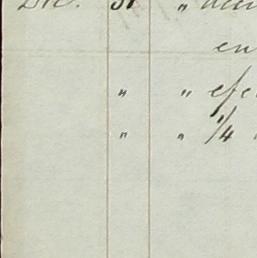 Dic. 31 "
en
" " efe
" " 1/4